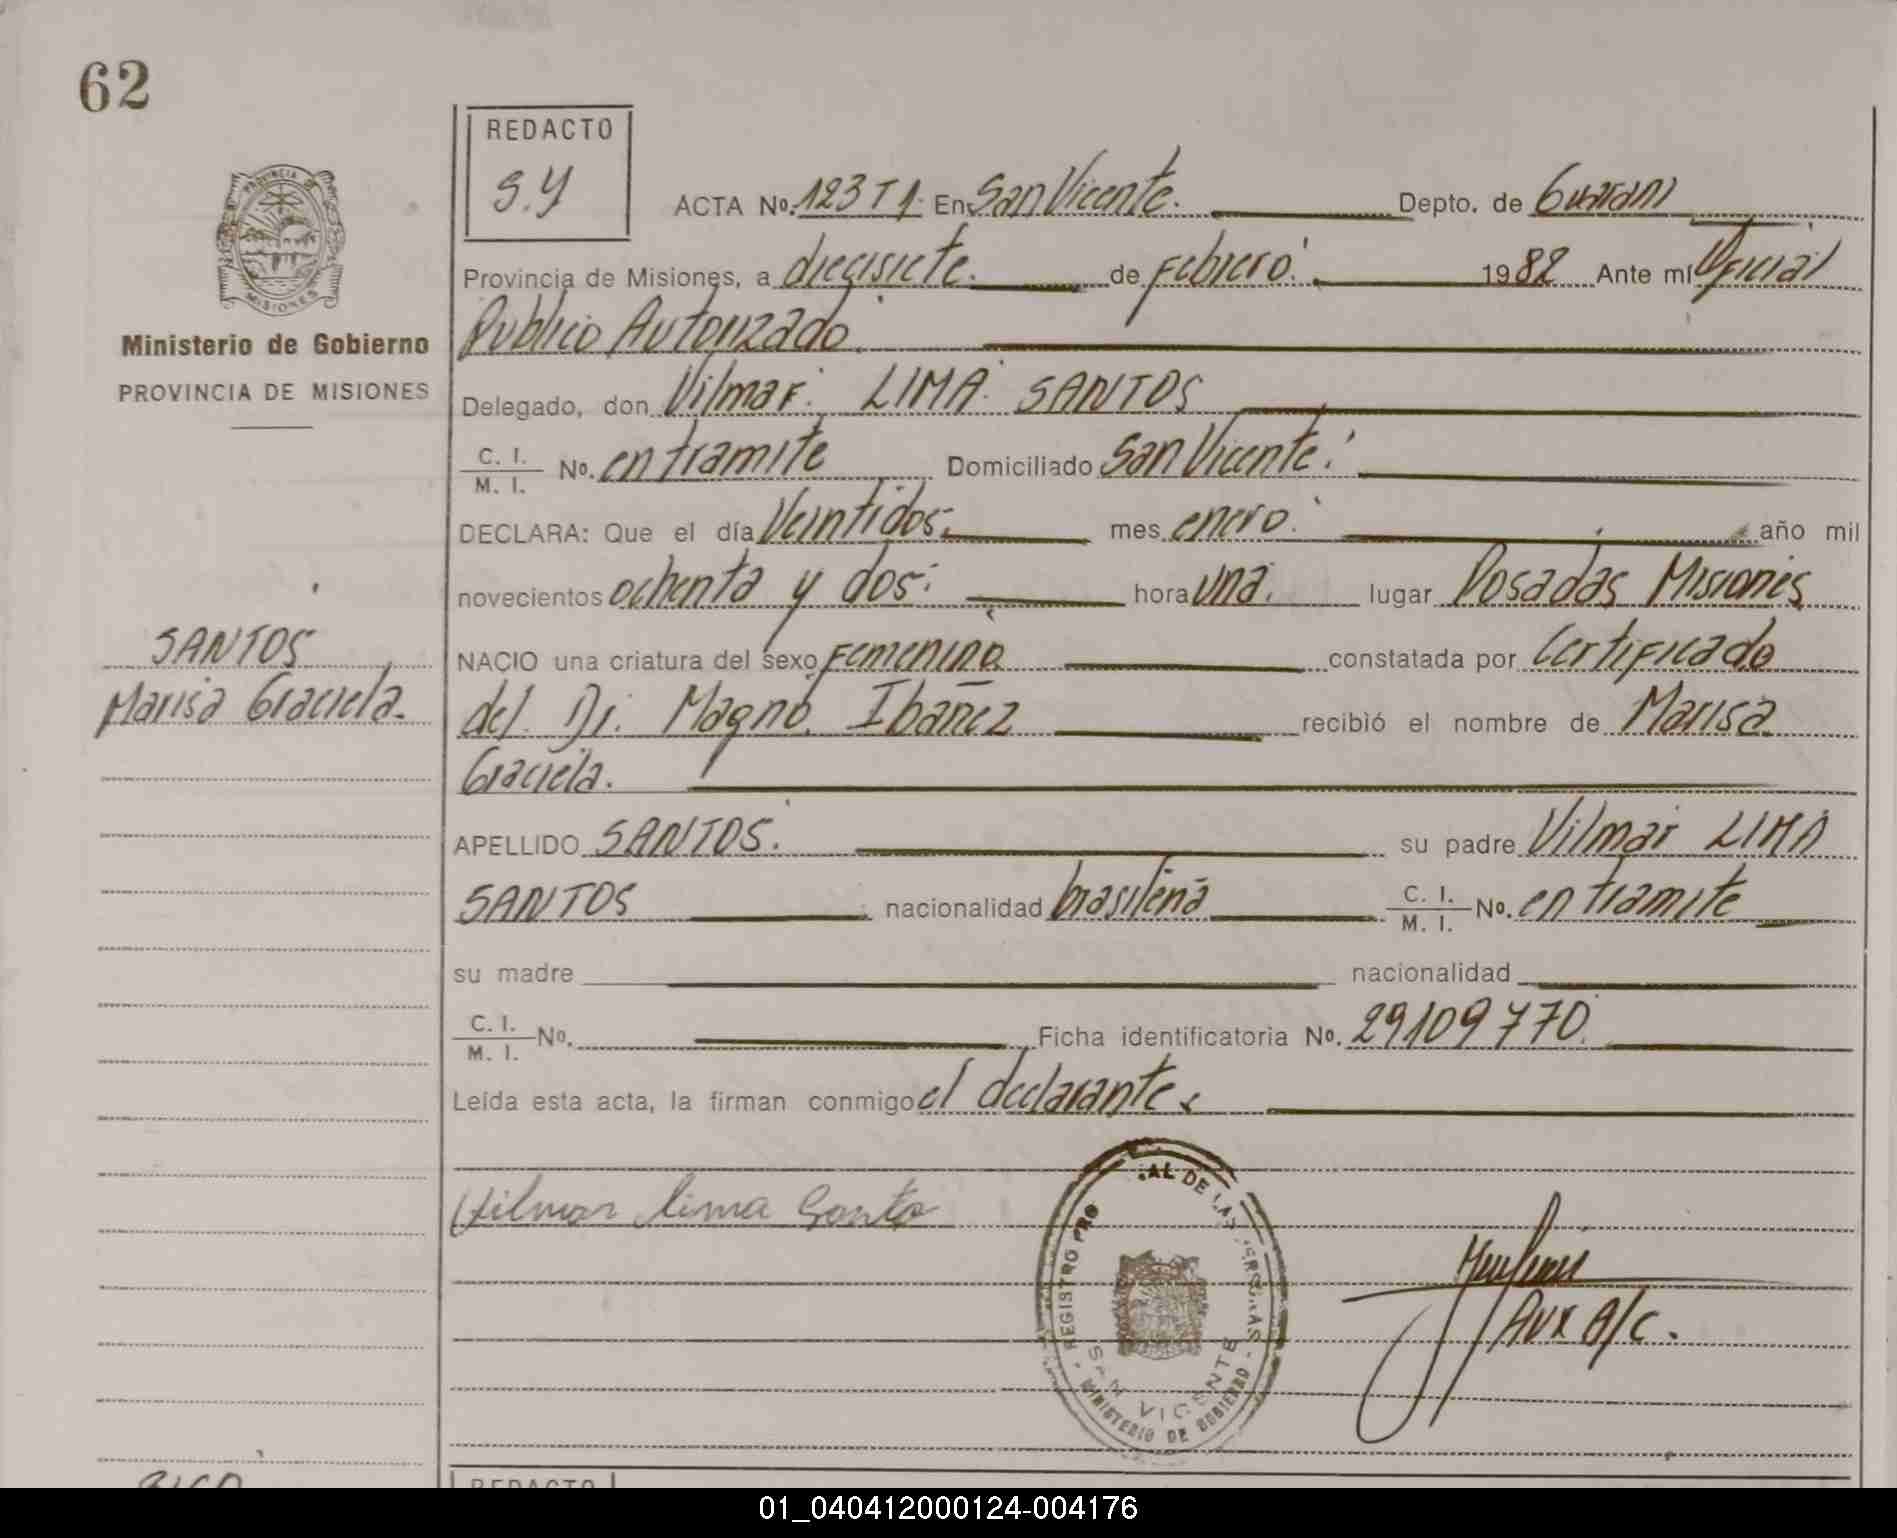 62
REDACTO
S.Y
ACTA No. 123 T 1. En San Vicente. Depto. de Guaraní
PROVINCIA DE MISIONES
Provincia de Misiones, a diecisiete. de Febrero. 1982 Ante mí Oficial
Ministerio de Gobierno
Publico Autorizado.
PROVINCIA DE MISIONES
Delegado, don Vilmar. LIMA. SANTOS
C. I.
M. I. No. en tramite Domiciliado San Vicente.
DECLARA: Que el día Veintidos. mes enero. año mil
novecientos ochenta y dos. hora una. lugar Posadas Misiones
SANTOS
NACIO una criatura del sexo Femenino constatada por Certificado
Marisa Graciela.
del Dr. Magno. Ibañez recibió el nombre de Marisa
Graciela.
APELLIDO SANTOS. su padre Vilmar LIMA
SANTOS nacionalidad brasileña C. I.
M. I. No. en tramite
su madre nacionalidad
C. I.
M. I. No. Ficha identificatoria No. 29109770.
Leída esta acta, la firman conmigo el declarante.
Vilmar lima Santo
REGISTRO PRO AL DE LAS PERSONAS
SAN VICENTE
MINISTERIO DE GOBIERNO
Aux A/C.
REDACTO
01_040412000124-004176